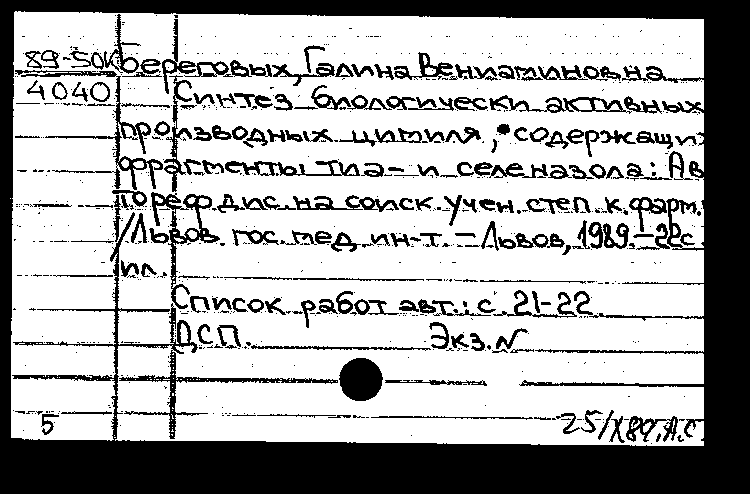 89-50К Береговых, Галина Вениаминовна
4040 Синтез биологически активных
производных цимиля, содержащих
фрагменты тиа- и селеназола: Ав
тореф.дис.на соиск.учен.степ.к.фарм.
/Львов. гос. мед. ин-т. - Львов, 1989.-22с.
ил.
Список работ авт.: с. 21-22.
ДСП. Экз.N
5 25/X89.А.С.